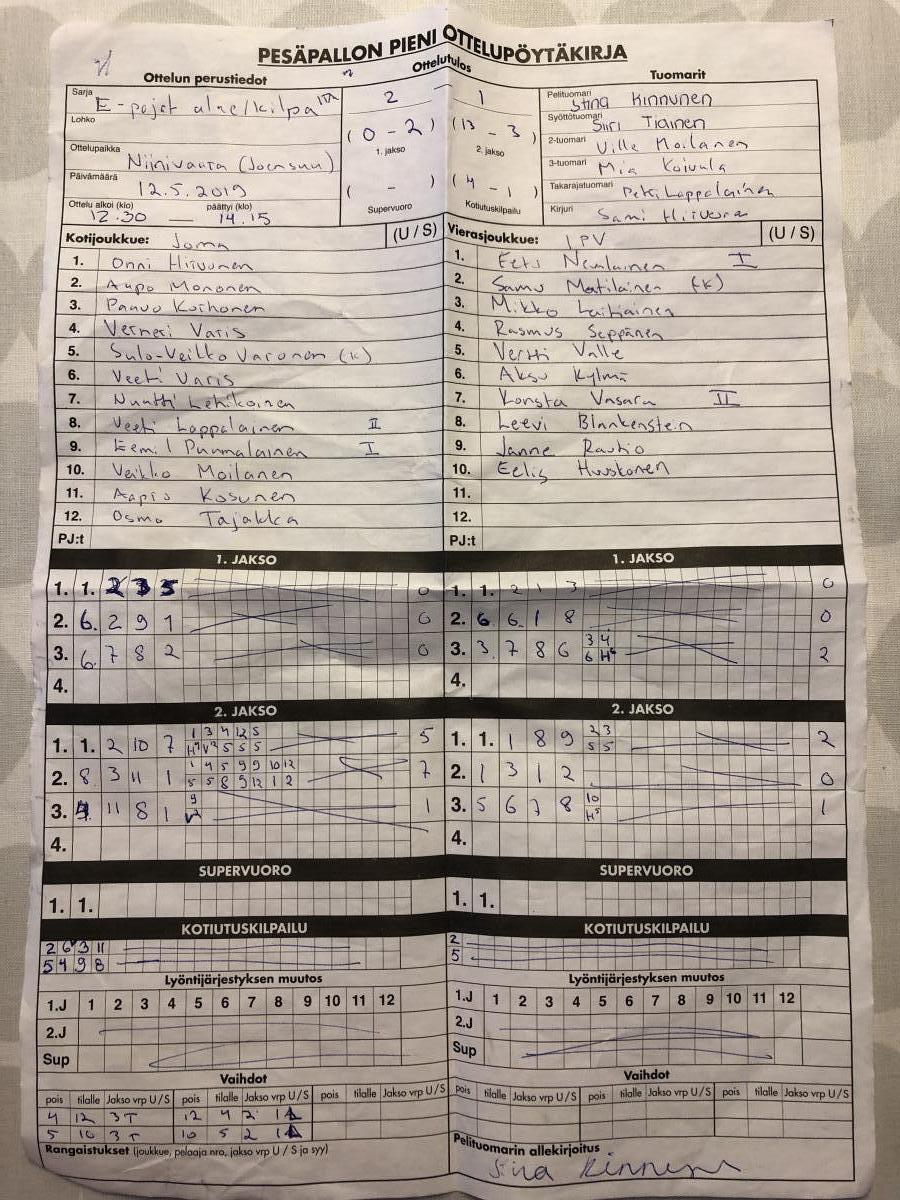 PESÄPALLON PIENI OTTELUPÖYTÄKIRJA
Ottelun perustiedot
Ottelutulos
Tuomarit
Sarja
E-pojat alne/kilpa
Lohko
Ottelupaikka
Niinivaara (Joensuu)
Päivämäärä
12.5.2019
Ottelu alkoi (klo) päättyi (klo)
12.30 — 14.15
2 1
(0 - 2) (13 - 3)
1. jakso 2. jakso
( - ) (4 - 1)
Supervuoro Kotiutuskilpailu
Pelituomari
Stina Kinnunen
Syöttötuomari
Siiri Tiainen
2-tuomari
Ville Moilanen
3-tuomari
Mia Koivula
Takarajatuomari
Petri Lappalainen
Kirjuri
Sami Hiivuora
Kotijoukkue: Joma (U / S)
1. Onni Hiivunen
2. Aapo Mononen
3. Paavo Korhonen
4. Verneri Varis
5. Sulo-Veikko Varonen (k)
6. Veeti Varis
7. Nuutti Lehikoinen
8. Veeti Lappalainen II
9. Eemil Purmalainen I
10. Veikko Moilanen
11. Aapro Kosunen
12. Osmo Tajakka
PJ:t
Vierasjoukkue: IPV (U / S)
1. Eetu Nevalainen I
2. Samu Matilainen (k)
3. Mikko Laitiainen
4. Rasmus Seppänen
5. Vertti Valle
6. Aksu Kylmä
7. Konsta Vasara II
8. Leevi Blankenstein
9. Janne Rautio
10. Eelis Huuskonen
11.
12.
PJ:t
1. JAKSO
1. 1. 2 3 5 0
2. 6. 2 9 1 0
3. 6. 7 8 2 0
4.
1. JAKSO
1. 1. 2 1 3 0
2. 6 6. 1 8 0
3. 3. 7 8 6 3 4 2
6 H
4.
2. JAKSO
1. 1. 2 10 7 1 3 4 12 5 5
H V² 5 5 5
2. 8 3 11 1 1 4 5 9 9 10 12 7
5 5 8 9 12 1 2
3. 4. 11 8 1 9 1
V²
4.
2. JAKSO
1. 1. 1 8 9 2 3 2
5 5
2. 1 3 1 2 0
3. 5 6 7 8 10 1
H⁵
4.
SUPERVUORO
1. 1.
SUPERVUORO
1. 1.
KOTIUTUSKILPAILU
2 6 3 11
5 4 9 8
KOTIUTUSKILPAILU
2
5
Lyöntijärjestyksen muutos
1.J 1 2 3 4 5 6 7 8 9 10 11 12
2.J
Sup
Lyöntijärjestyksen muutos
1.J 1 2 3 4 5 6 7 8 9 10 11 12
2.J
Sup
Vaihdot
pois tilalle Jakso vrp U/S pois tilalle Jakso vrp U/S pois tilalle Jakso vrp U/S
4 12 3T 12 4 2 1
5 10 3T 10 5 2 1
Rangaistukset (joukkue, pelaaja nro, jakso vrp U / S ja syy)
Vaihdot
pois tilalle Jakso vrp U/S pois tilalle Jakso vrp U/S pois tilalle Jakso vrp U/S
Pelituomarin allekirjoitus
Stina Kinnunen